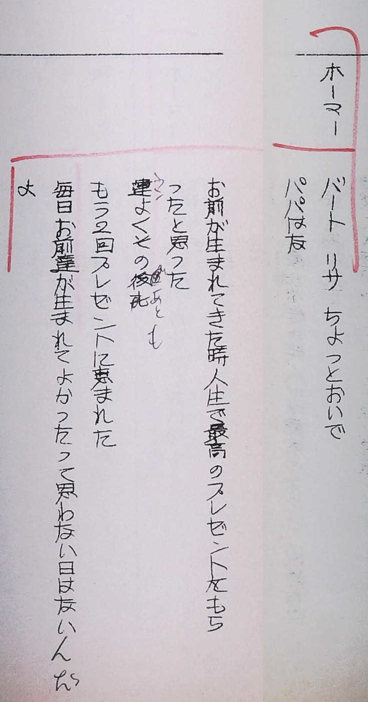 ホーマー
バート リサ ちょっとおいで
パパはな
お前が生まれてきた時人生で最高のプレゼントをもら
ったと思った
運よくその後
ウン
あとも
もう2回プレゼントに恵まれた
毎日お前達が生まれてよかったって思わない日はないんだ
よ